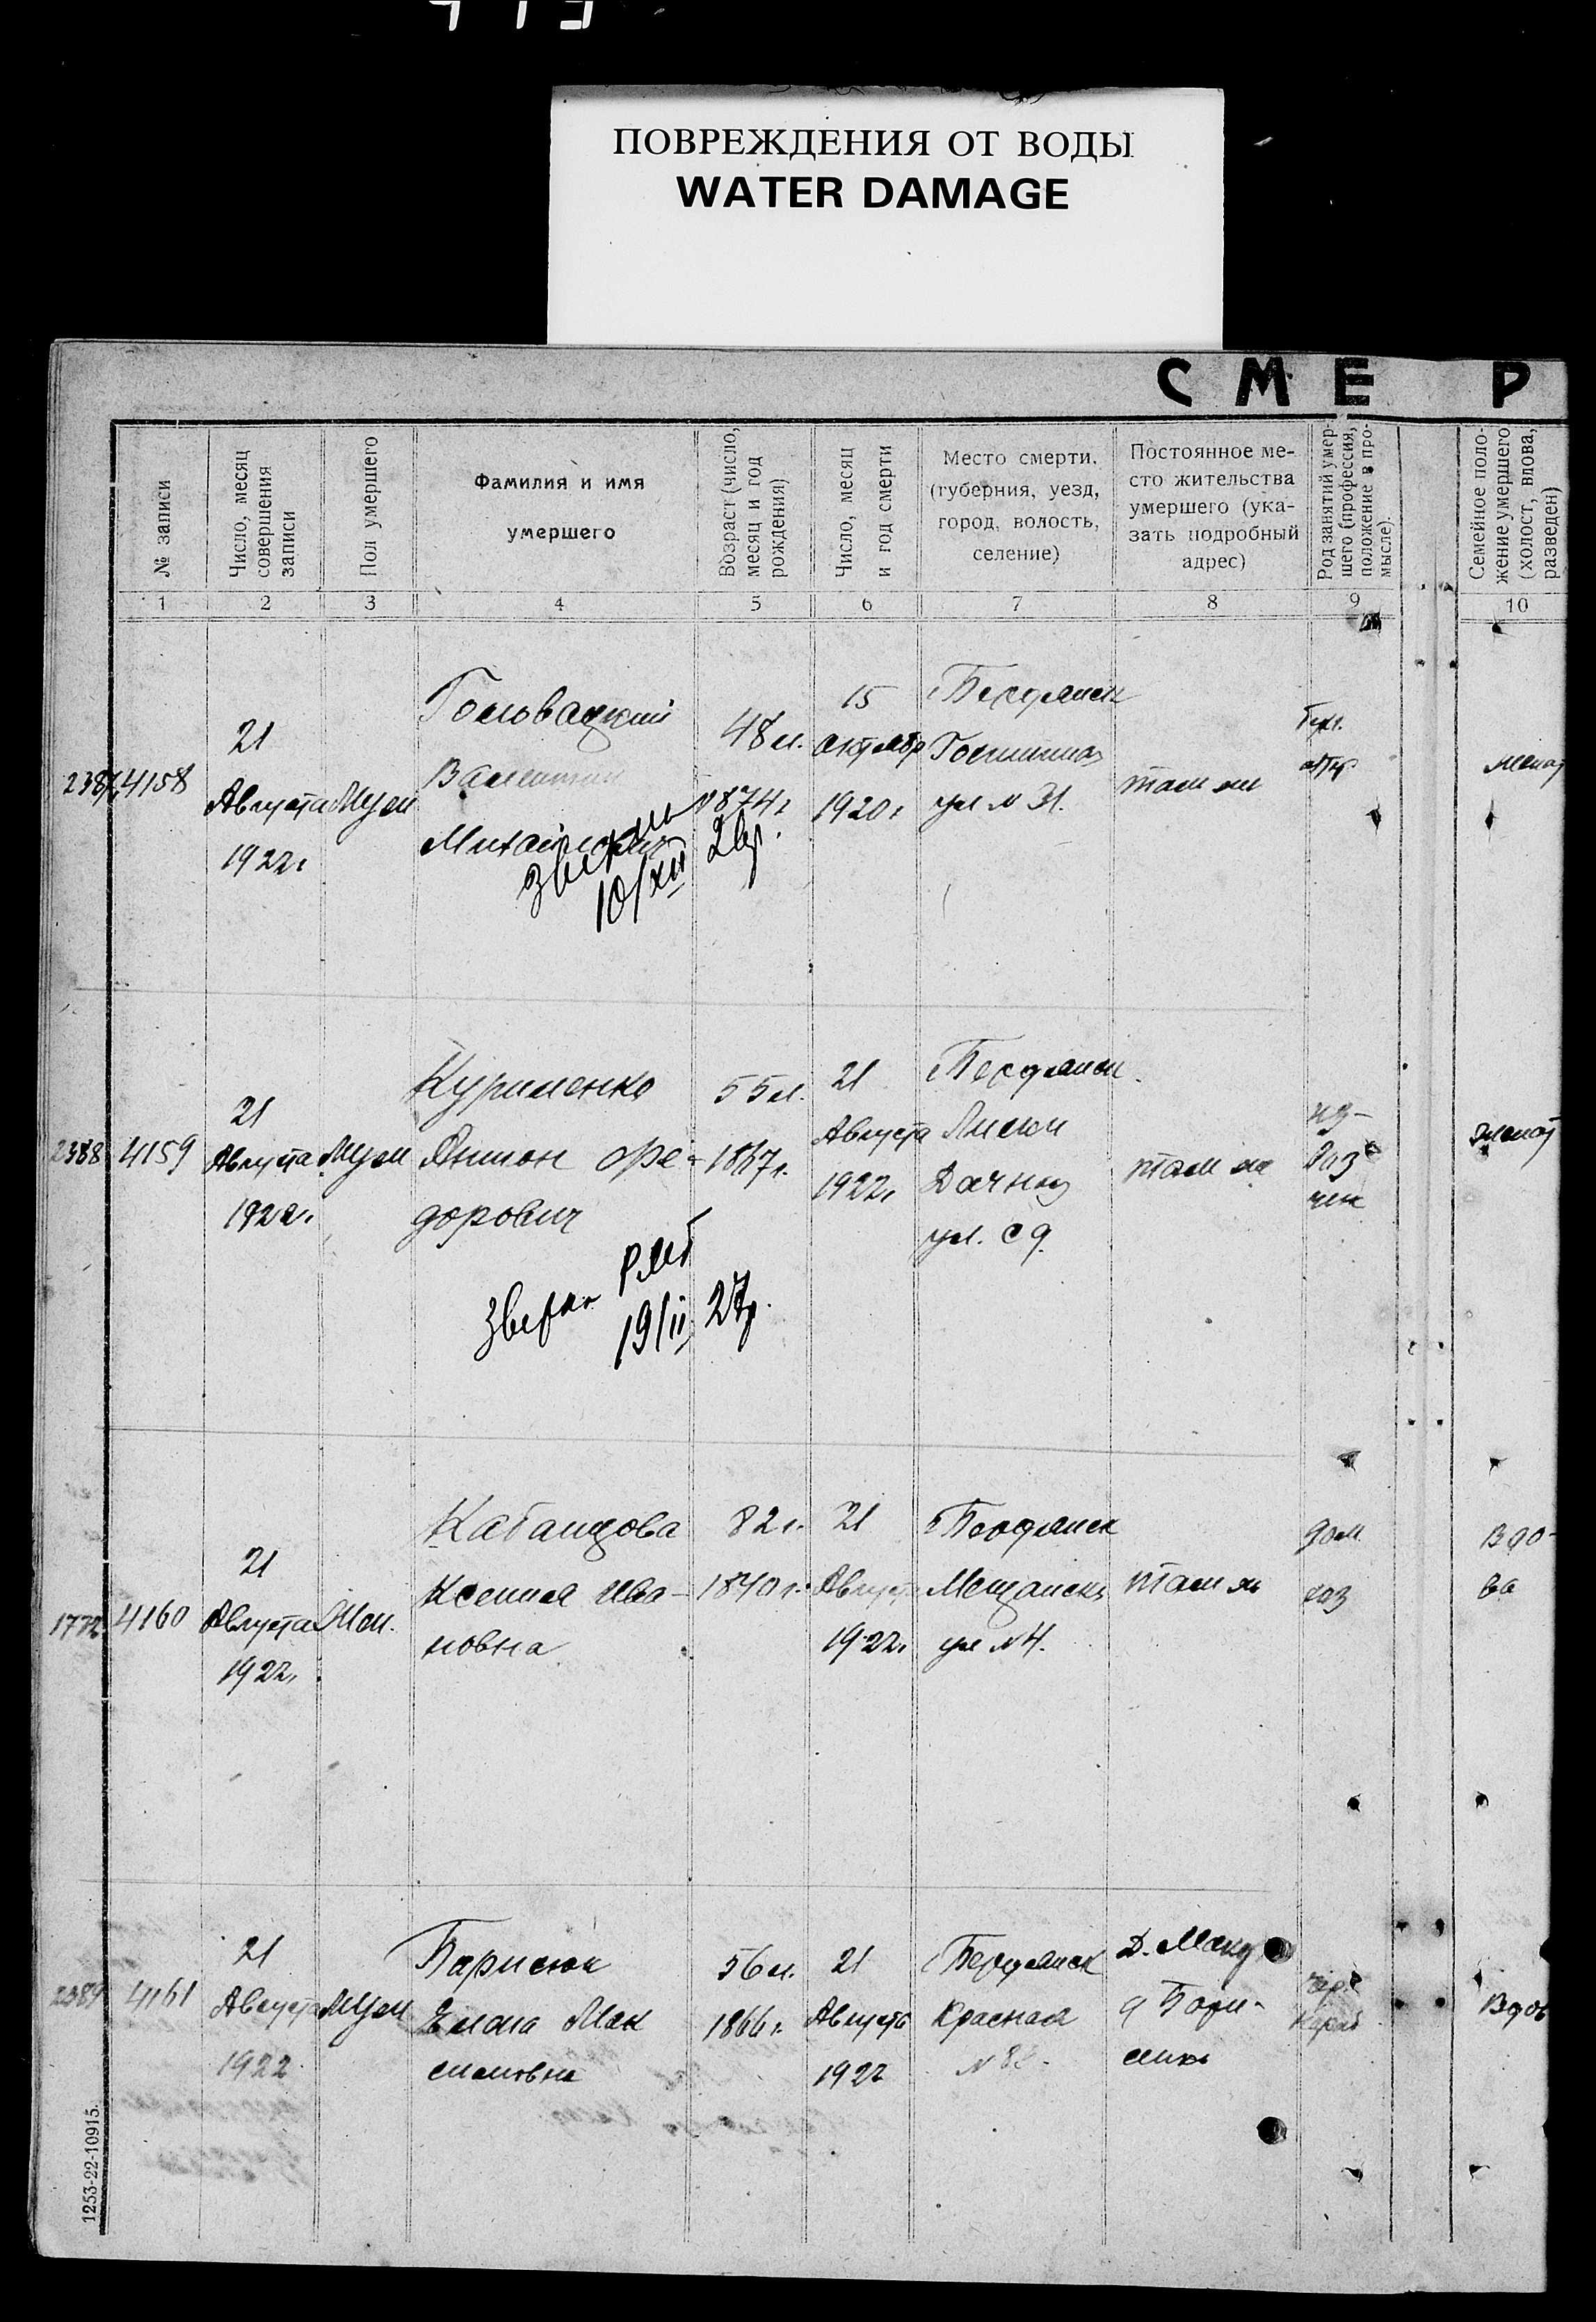 ПОВРЕЖДЕНИЯ ОТ ВОДЫ
WATER DAMAGE
СМЕ Р
№ записи
Число, месяц
совершения
записи
Пол умершего
Фамилия и имя
умершего
Возраст (число,
месяц и год
рождения)
Число, месяц
и год смерти
Место смерти.
(губерния, уезд,
город, волость,
селение)
Постоянное ме-
сто жительства
умершего (ука-
зать подробный
адрес)
Род занятий умер-
шего (профессия,
положение в про-
мысле).
Семейное поло-
жение умершего
(холост, вдова,
разведен)
1 2 3 4 5 6 7 8 9 10
2387 4158
21
Августа
1922г
Муж
Головацкий
Валентин
Михайлович
10/XII
48 л.
1874г
15
октябр
1920г
Бердянск
ул № 31.
там же
женат
2388 4159
21
Августа
1922г.
Муж
Куриленко
Антон Фе-
дорович
Зверен
19/II 27г.
55 л.
1867г.
21
Августа
1922г
Бердянск
Лиски
Дачная
ул. с д.
там же
из-
воз
чик
женат
1772 4160
21
Августа
1922г
Жен.
Кабанцова
Ксения Ива-
новна
82 г.
1840 г.
21
Август
1922г
Бердянск
Мещанска
ул № 4.
там же
дом
хоз
Вдо-
ва
2389 4161
21
Августа
1922
Муж
Барисюк
Мак
симовна
56 л.
1866г.
21
Августа
1922
Бердянск
Красная
Вдов
1253-22-10915.